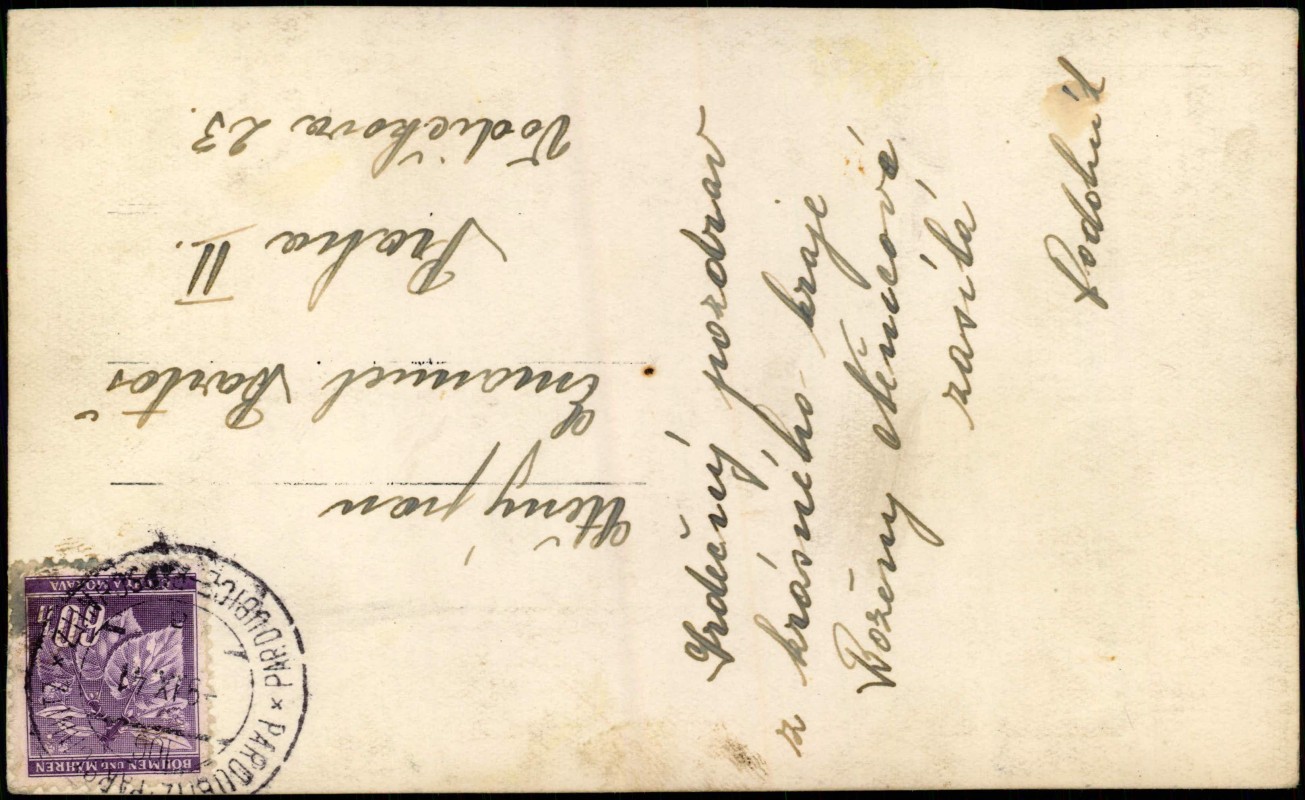 Srdečný pozdrav
z krásného kraje
Boženy Němcové
zasílá
Ctěný pan
Emanuel Bartoš
Praha II.
Vodičkova 23.
BÖHMEN UND MÄHREN
ČECHY A MORAVA
60
PARDUBICE × PARDUBITZ